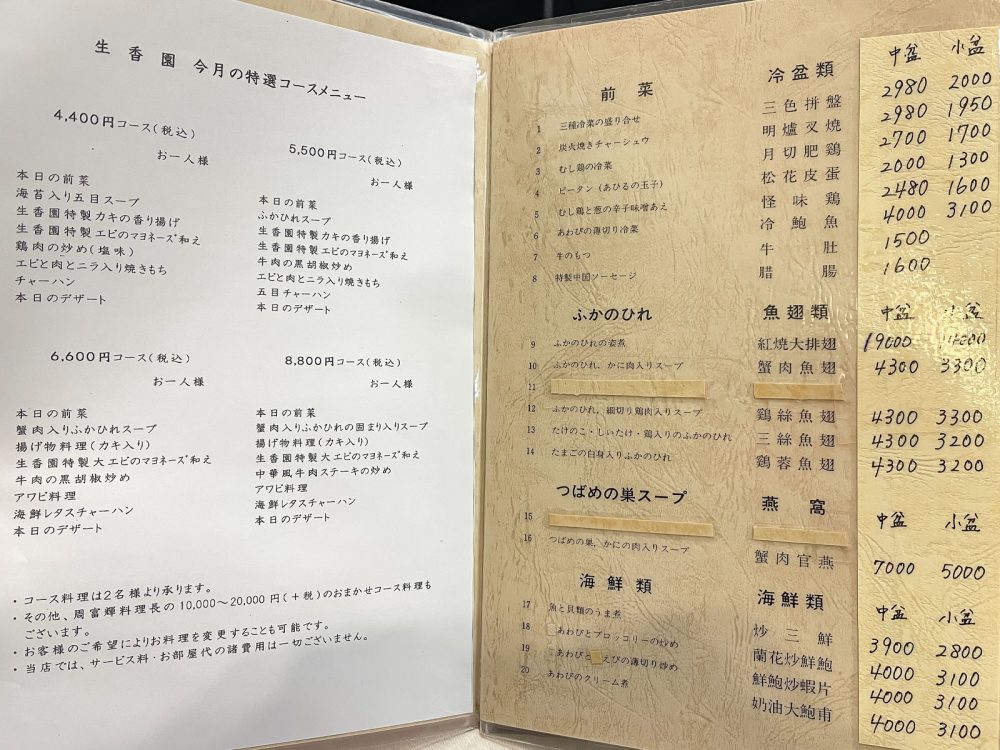 生香園 今月の特選コースメニュー
4,400円コース(税込)
お一人様
本日の前菜
海苔入り五目スープ
生香園特製カキの香り揚げ
生香園特製エビのマヨネーズ和え
鶏肉の炒め(塩味)
エビと肉とニラ入り焼きもち
チャーハン
本日のデザート
5,500円コース(税込)
お一人様
本日の前菜
ふかひれスープ
生香園特製カキの香り揚げ
生香園特製エビのマヨネーズ和え
牛肉の黒胡椒炒め
エビと肉とニラ入り焼きもち
五目チャーハン
本日のデザート
6,600円コース(税込)
お一人様
本日の前菜
蟹肉入りふかひれスープ
揚げ物料理(カキ入り)
生香園特製大エビのマヨネーズ和え
牛肉の黒胡椒炒め
アワビ料理
海鮮レタスチャーハン
本日のデザート
8,800円コース(税込)
お一人様
本日の前菜
蟹肉入りふかひれの固まり入りスープ
揚げ物料理(カキ入り)
生香園特製大エビのマヨネーズ和え
中華風牛肉ステーキの炒め
アワビ料理
海鮮レタスチャーハン
本日のデザート
・コース料理は2名様より承ります。
・その他、周富輝料理長の10,000～20,000円(+税)のおまかせコース料理も
ございます。
・お客様のご希望によりお料理を変更することも可能です。
・当店では、サービス料・お部屋代の諸費用は一切ございません。
前菜 冷盆類 中盆 小盆
1 三種冷菜の盛り合せ 三色拼盤 2980 2000
2 炭火焼きチャーシュウ 明爐叉燒 2980 1950
3 むし鶏の冷菜 月切肥鶏 2700 1700
4 ピータン(あひるの玉子) 松花皮蛋 2000 1300
5 むし鶏と葱の辛子味噌あえ 怪味鶏 2480 1600
6 あわびの薄切り冷菜 冷鮑魚 4000 3100
7 牛のもつ 牛肚 1500
8 特製中国ソーセージ 腊腸 1600
ふかのひれ 魚翅類 中盆 小盆
9 ふかのひれの姿煮 紅燒大排翅 19000
10 ふかのひれ、かに肉入りスープ 蟹肉魚翅 4300 3300
11
12 ふかのひれ、細切り鶏肉入りスープ 鶏絲魚翅 4300 3300
13 たけのこ・しいたけ・鶏入りのふかのひれ 三絲魚翅 4300 3200
14 たまごの白身入りふかのひれ 鶏蓉魚翅 4300 3200
つばめの巣スープ 燕窩 中盆 小盆
15
16 つばめの巣、かにの肉入りスープ 蟹肉官燕 7000 5000
海鮮類 海鮮類 中盆 小盆
17 魚と貝類のうま煮 炒三鮮 3900 2800
18 あわびとブロッコリーの炒め 蘭花炒鮮鮑 4000 3100
19 あわびと えびの薄切り炒め 鮮鮑炒蝦片 4000 3100
20 あわびのクリーム煮 奶油大鮑甫 4000 3100